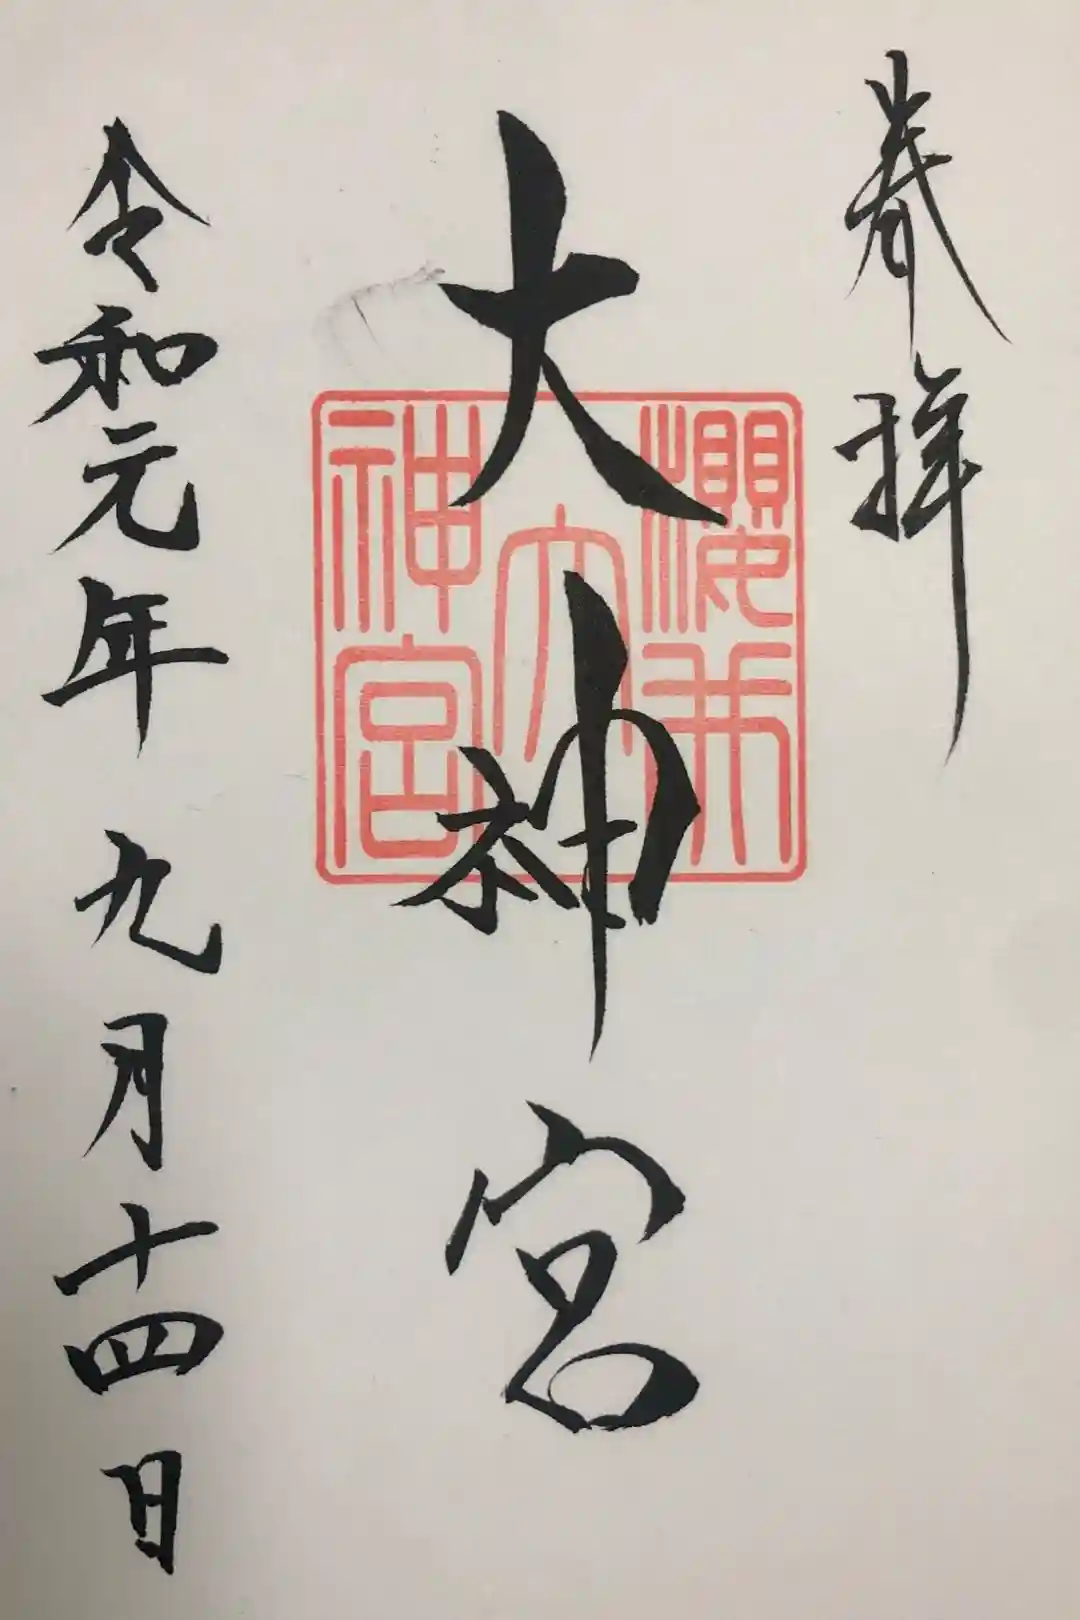 奉拝
大神宮
櫻井
大
神宮
令和元年九月十四日